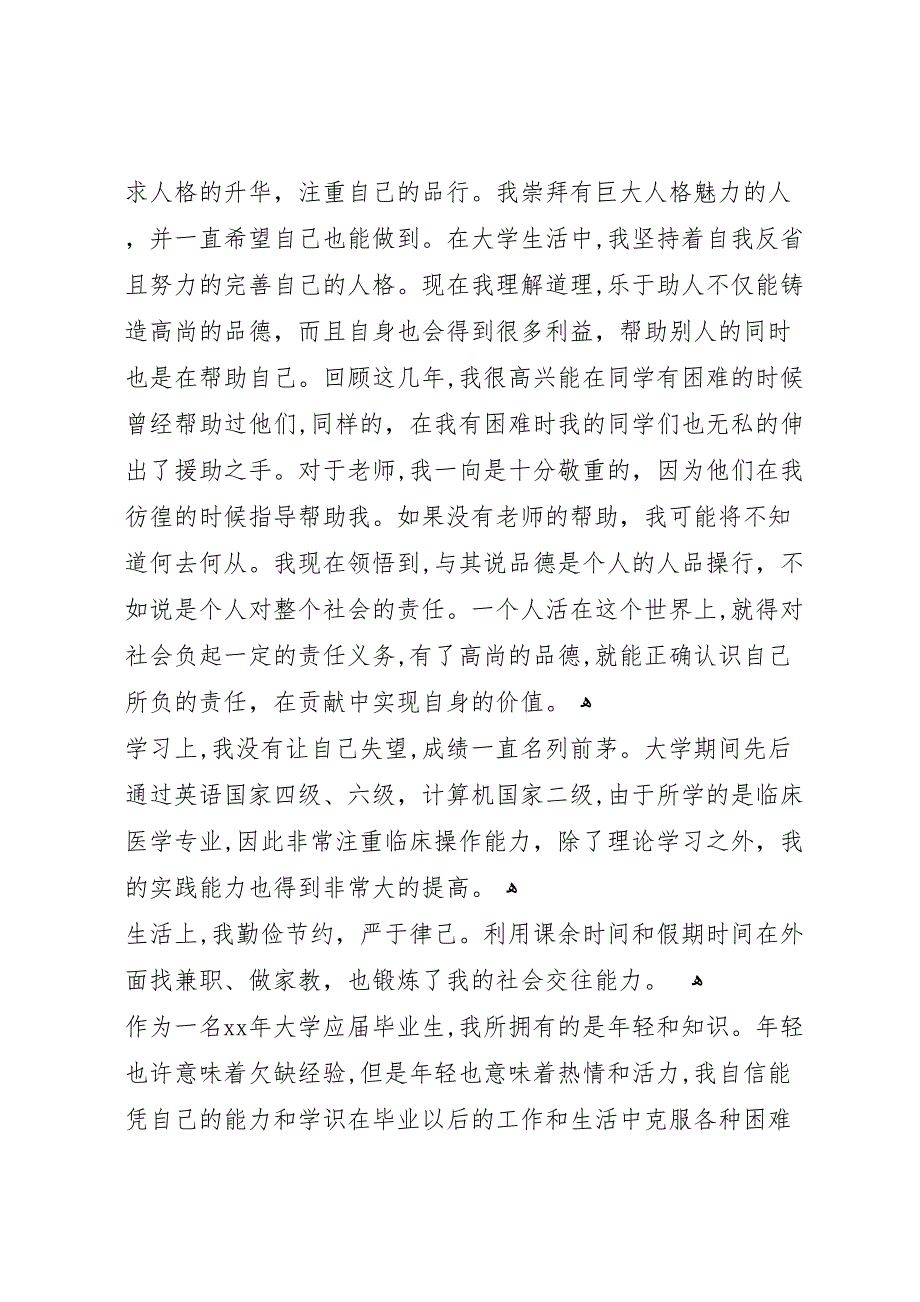 求人格的升华，注重自己的品行。我崇拜有巨大人格魅力的人
，并一直希望自己也能做到。在大学生活中,我坚持着自我反省
且努力的完善自己的人格。现在我理解道理,乐于助人不仅能铸
造高尚的品德，而且自身也会得到很多利益，帮助别人的同时
也是在帮助自己。回顾这几年,我很高兴能在同学有困难的时候
曾经帮助过他们,同样的，在我有困难时我的同学们也无私的伸
出了援助之手。对于老师,我一向是十分敬重的，因为他们在我
彷徨的时候指导帮助我。如果没有老师的帮助，我可能将不知
道何去何从。我现在领悟到,与其说品德是个人的人品操行，不
如说是个人对整个社会的责任。一个人活在这个世界上,就得对
社会负起一定的责任义务,有了高尚的品德,就能正确认识自己
所负的责任，在贡献中实现自身的价值。 ﻫ
学习上,我没有让自己失望,成绩一直名列前茅。大学期间先后
通过英语国家四级、六级，计算机国家二级,由于所学的是临床
医学专业,因此非常注重临床操作能力，除了理论学习之外，我
的实践能力也得到非常大的提高。 ﻫ
生活上,我勤俭节约，严于律己。利用课余时间和假期时间在外
面找兼职、做家教，也锻炼了我的社会交往能力。 ﻫ
作为一名xx年大学应届毕业生,我所拥有的是年轻和知识。年轻
也许意味着欠缺经验,但是年轻也意味着热情和活力,我自信能
凭自己的能力和学识在毕业以后的工作和生活中克服各种困难